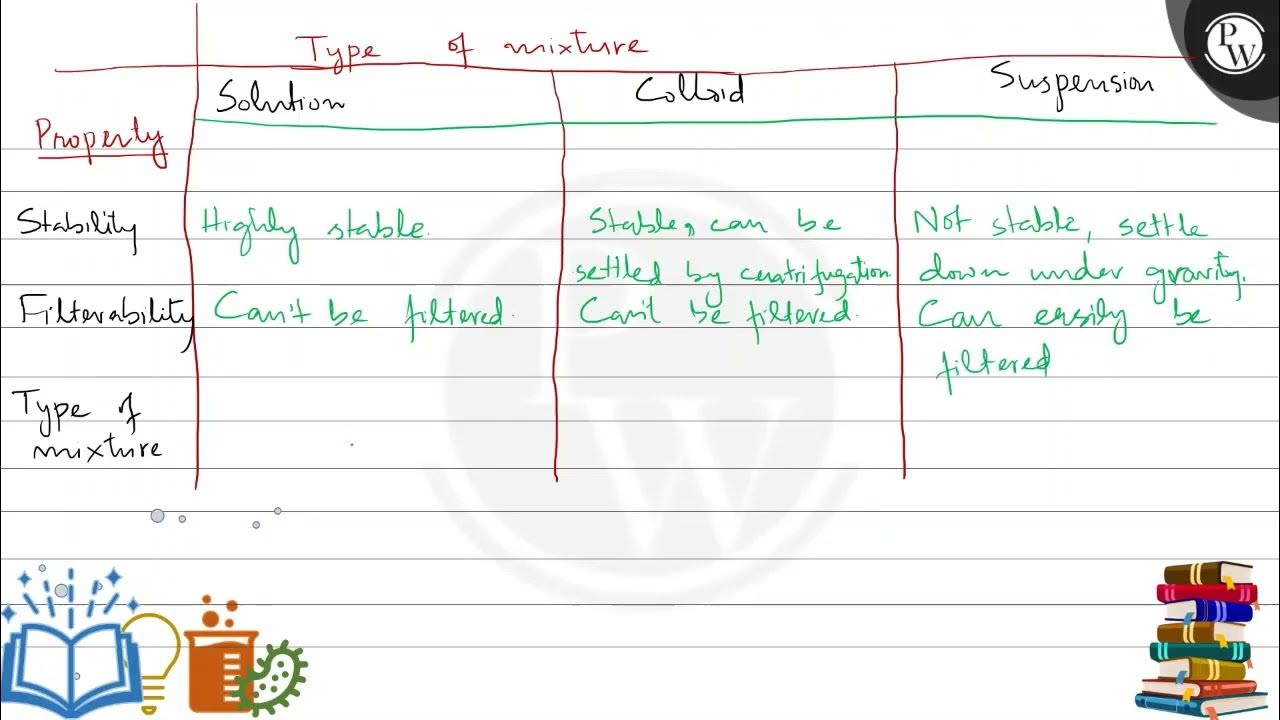 Type of mixture
Solution Colloid Suspension
Property
Stability Highly stable. Stable, can be Not stable, settle
settled by centrifugation down under gravity.
Filterability Can't be filtered. Can't be filtered. Can easily be
filtered
Type of
mixture
PW
PW